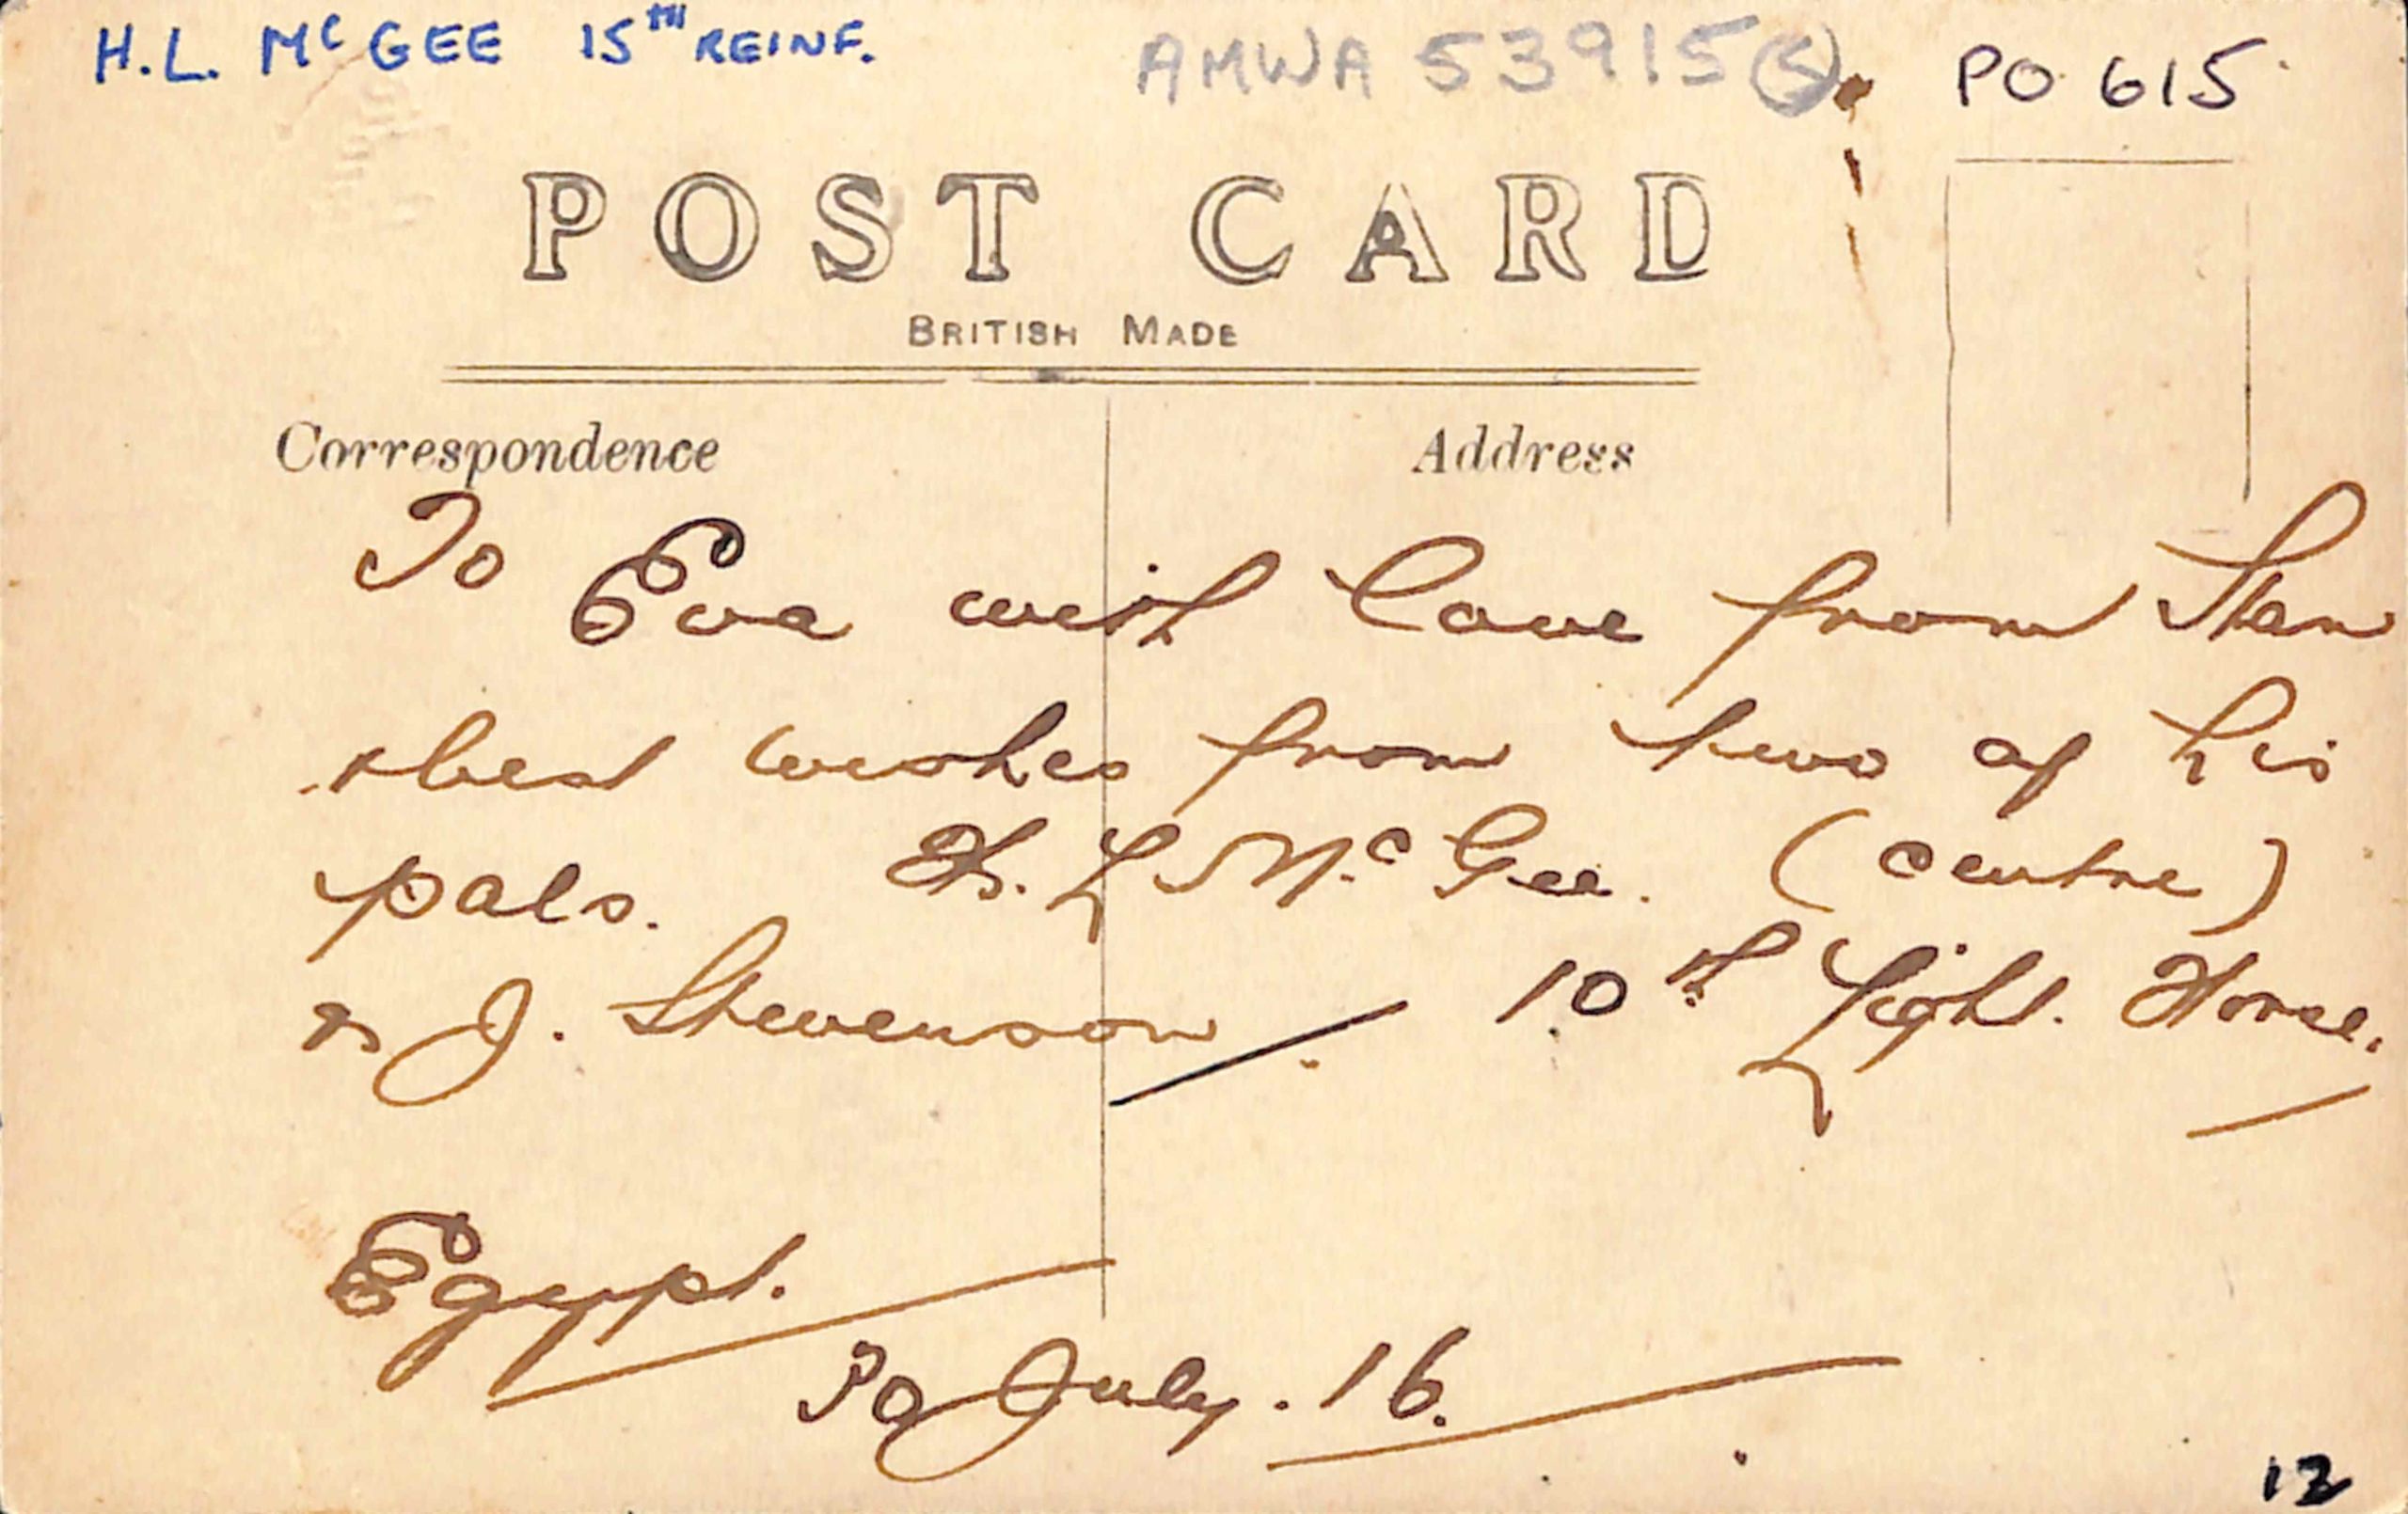 H.L. McGEE 15TH REINF. AMWA 53915(5) PO 615
POST CARD
BRITISH MADE
Correspondence Address
To Eva with love from Stan
& best wishes from two of his
pals. H. L McGee. (centre)
& J. Stevenson 10th Light. Horse.
Egypt.
30 July. 16.
12